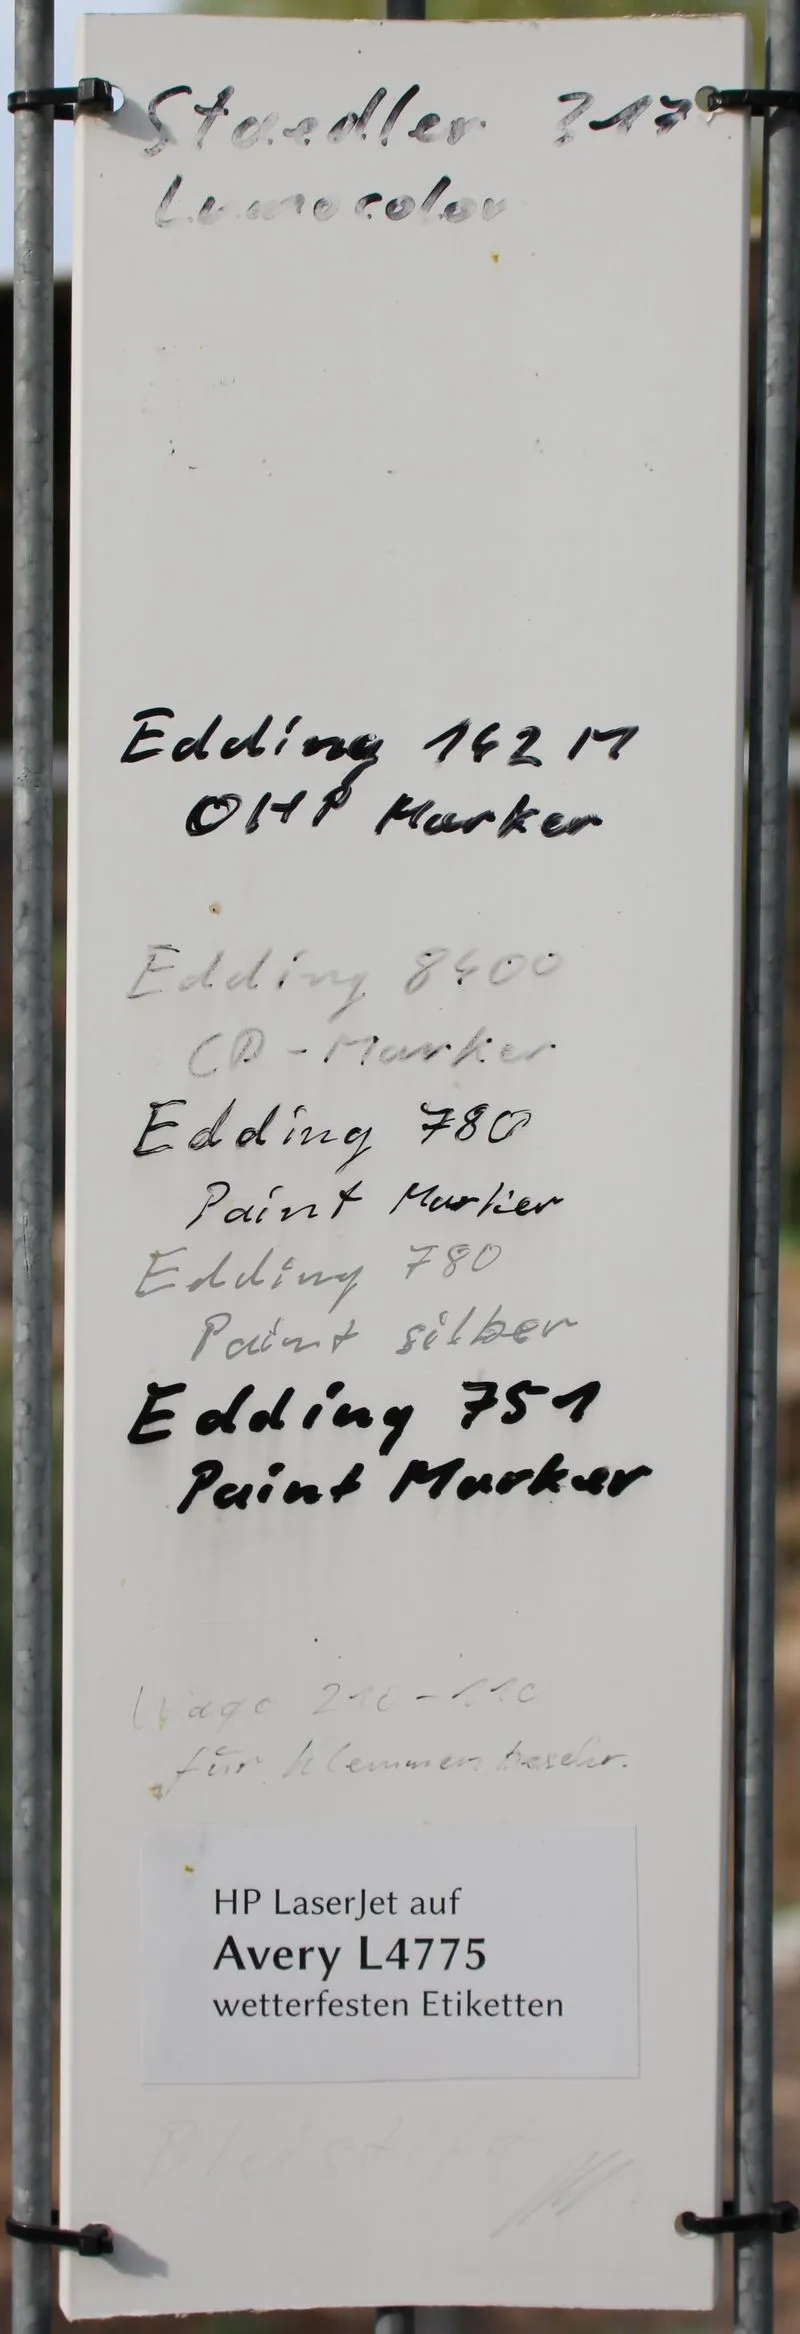 Staedler 317
Lumocolor
Edding 142 M
OHP Marker
Edding 8400
CD-Marker
Edding 780
Paint Marker
Edding 780
Paint silber
Edding 751
Paint Marker
Wago 210-110
für Klemmenbeschr.
HP LaserJet auf
Avery L4775
wetterfesten Etiketten
Bleistift